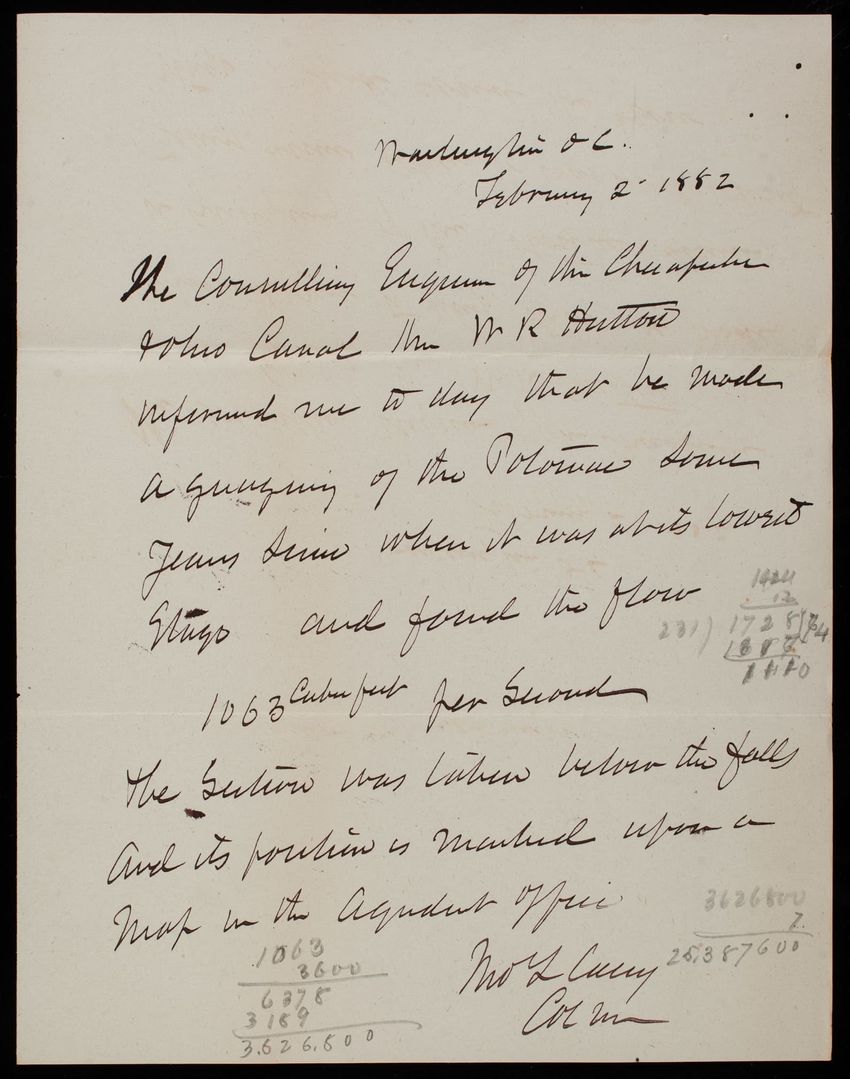 Washington D C.
February 2 1882
The Consulting Engineer of the Chesapeake
& Ohio Canal Mr W R Hutton
informed me to day that he made
a guaging of the Potomac some
years since when it was at its lowest
Stage and found the flow
1063 Cubic feet per Second
The Section was taken below the falls
And its position is marked upon a
Map in the Aqueduct Office
Tho L Casey
Col
12
231) 1728 (
1063
3600
6378
3189
3.826.800
3626800
7.
25,387600